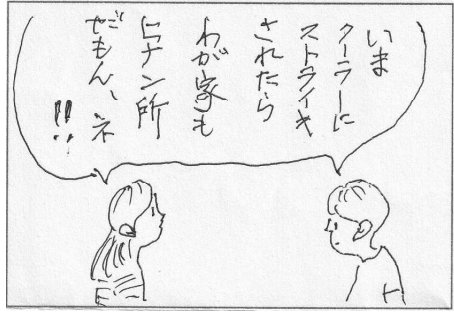 いま
クーラーに
ストライキ
されたら
わが家も
ヒナン所
だもん、ネ
!!